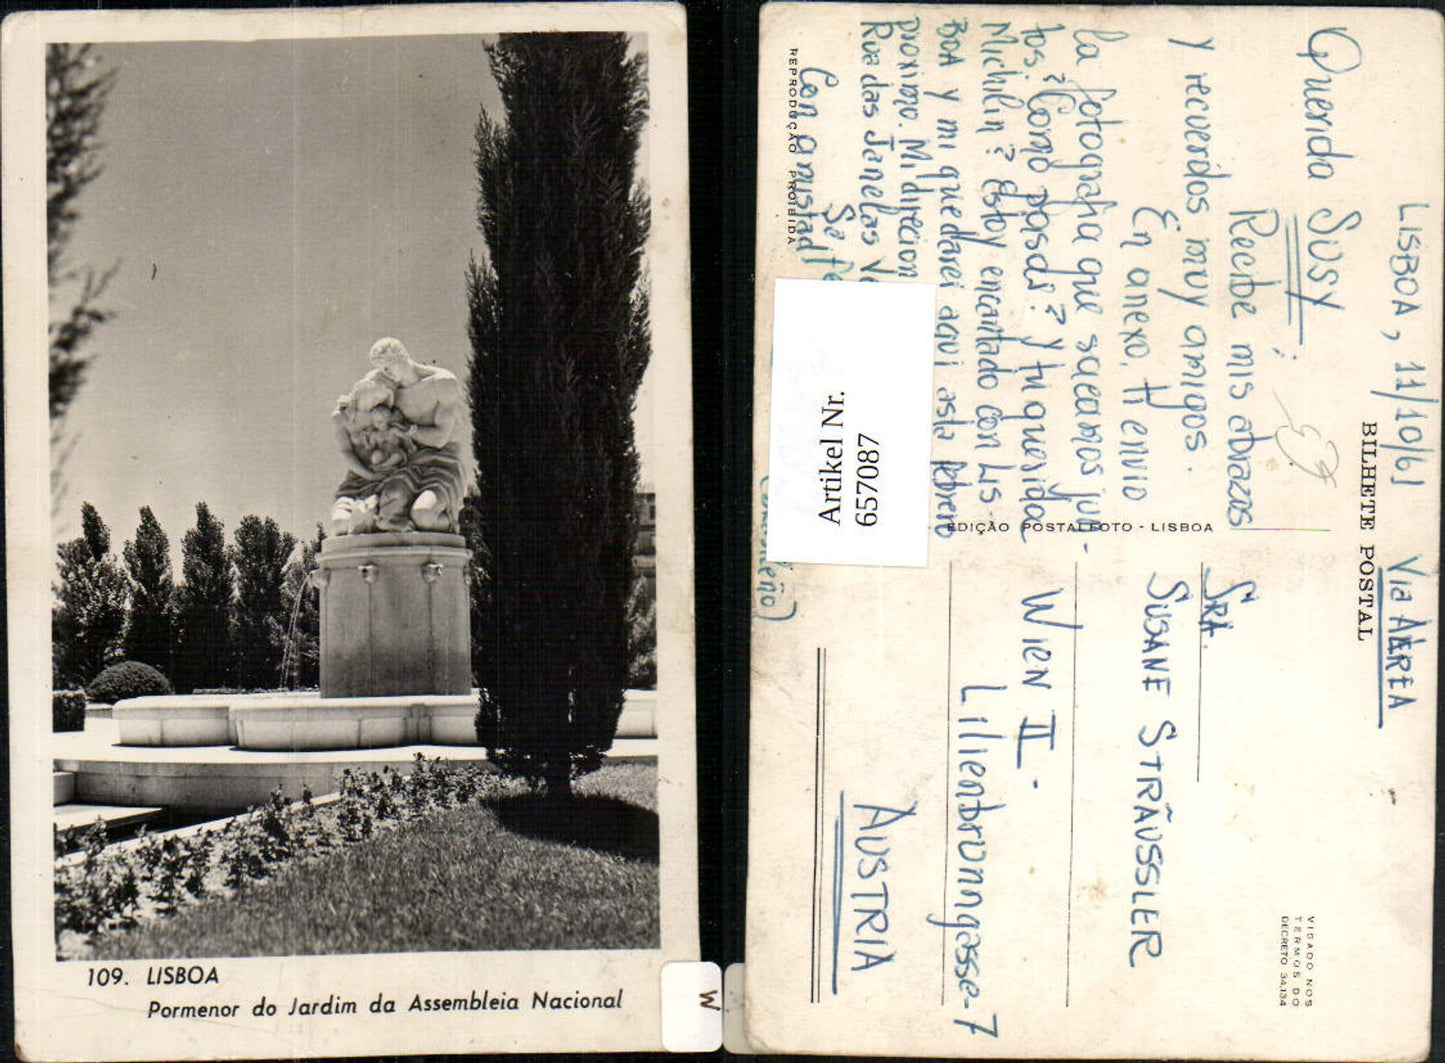 109. LISBOA
Pormenor do Jardim da Assembleia Nacional
W
LISBOA, 11/10/61 Via AÉREA
BILHETE POSTAL
Querida SUSY;
Recibe mis abrazos
y recuerdos muy amigos.
En anexo, ti envio
la fotografia que sacamos jun-
tos. ? Como pasas? y tu querida
Michilin? Estoy encantado con Lis-
BOA y mi quedarei aqui asta febrero
proximo. Mi direcion
Rua das Janelas Ve
Con amistad
REPRODUÇÃO PROIBIDA
Artikel Nr.
657087
EDIÇÃO POSTALFOTO - LISBOA
SRA.
SUSANE STRÃUSSLER
WIEN II.
Lilienbrunngasse-7
AUSTRIA
VISADO NOS
TERMOS DO
DECRETO 34.134